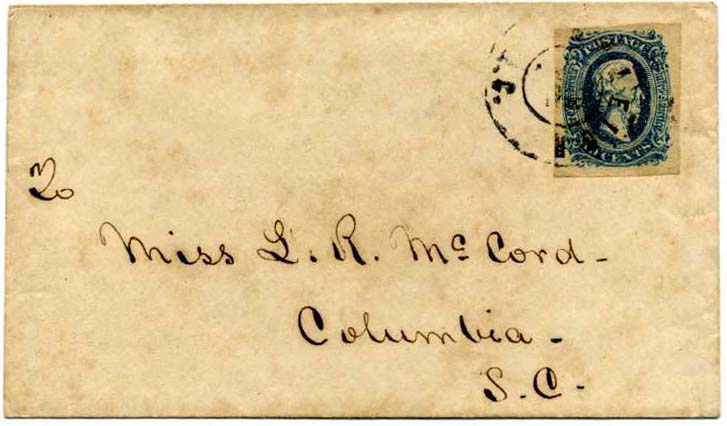 POSTAGE
CENTS
To
Miss L. R. McCord -
Columbia -
S. C. -